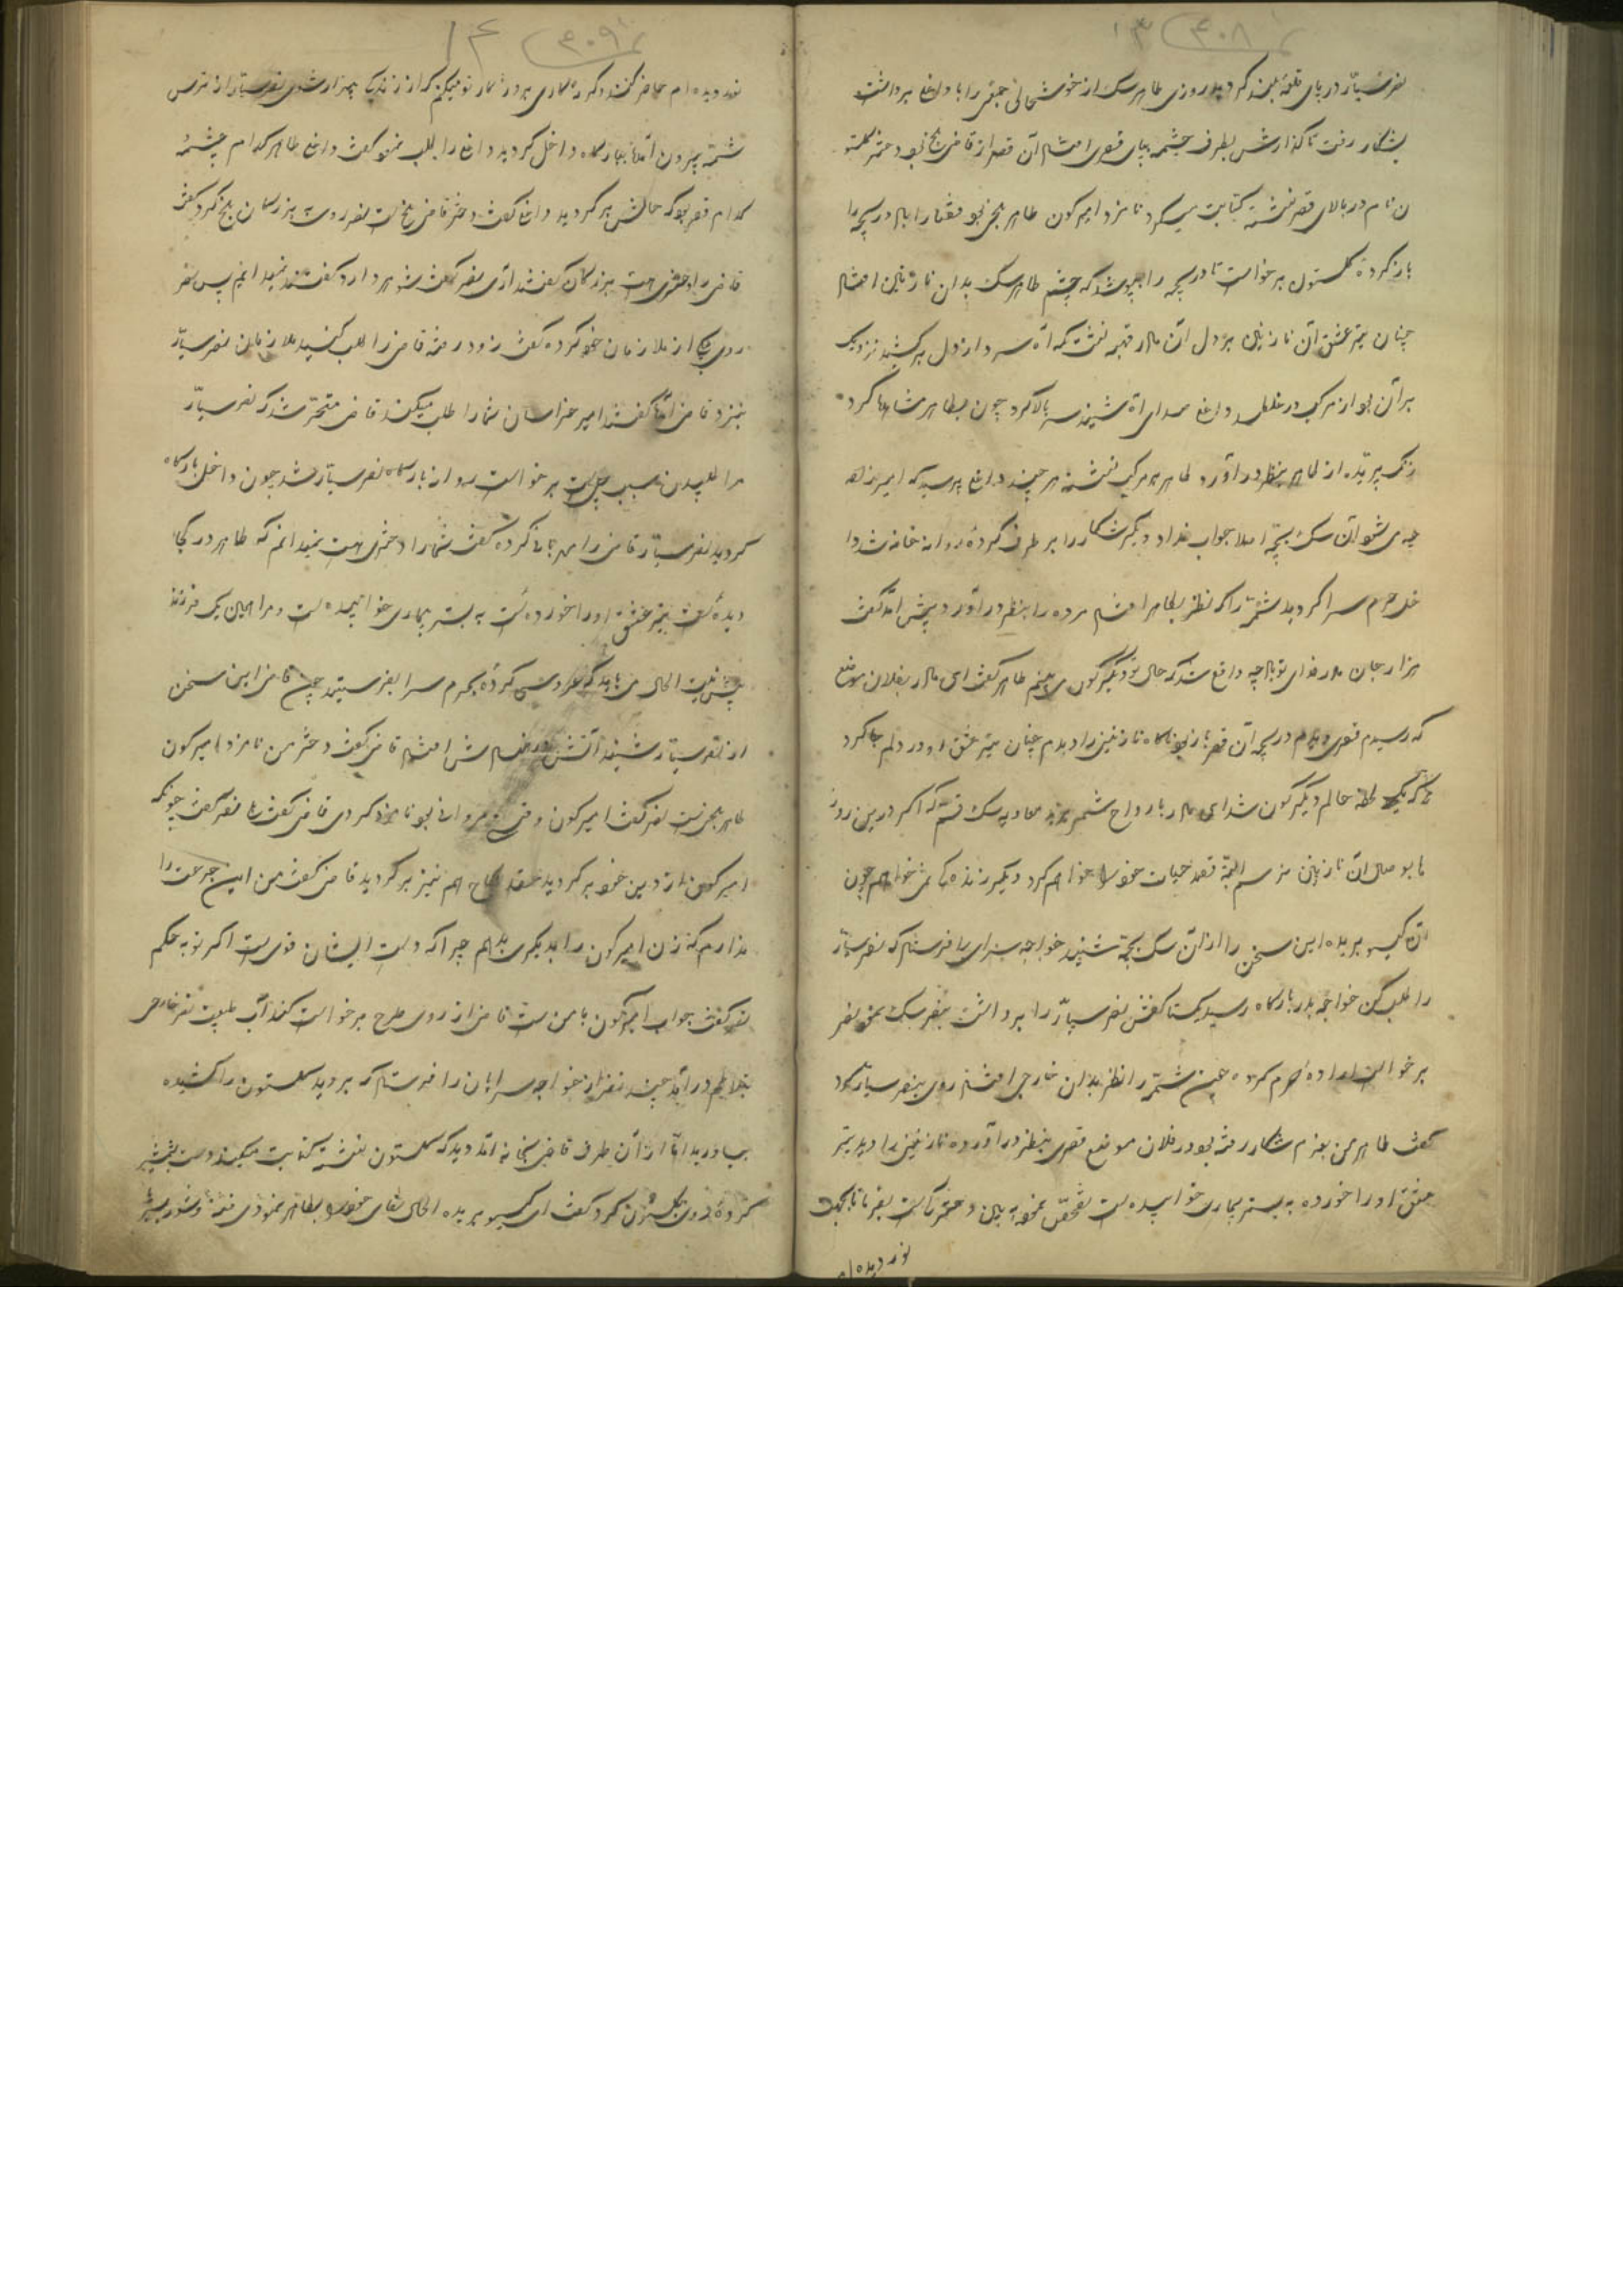 ۱۳ ۴۰۸
نصر سیار در پای قلعه بلند کردید روزی طاهر سک از خوشحالی جمعی را با داغ برداشت
بشکار رفت تا گذارش بطرف چشمه بپای قصری افتاد آن قصر از قاضی بلخ بود دختر کلستو
ن نام در بالای قصر نشسته کتابت میکرد نامزد امیر کون طاهر بلخی بود قضا را بالا دریچه را
باز کرده کلستون برخواست تا دریچه را بپوشد که چشم طاهر سک بدان نازنین افتاد
چنان تیر عشق آن نازنین بر دل آن مادر قحبه نشست که آه سرد از دل بر کشید نزدیک
بر آن بود از مرکب در غلطد داغ صدای آه شنیده سر بالا کرد چون بطاهر نکاه کرد
رنک پریده از طاهر بنظر در آورد طاهر بر مرکب نشسته هر چند داغ پرسید که امیرزاده
چه می شود آن سک بچه اصلا جواب نداد دیگر شکار را بر طرف کرده روانه خانه شد دا
خل حرم سرا کردید شمته را که نظر بطاهر افتاد مرده را بنظر در آورد پیش آمد گفت
هزار جان مادر فدای تو باد چه واقع شد که حال تو دیگرگون می بینم طاهر گفت ای مادر بفلان موضع
که رسیدم قصری دیدم دریچه آن قصر باز بود ناکاه نازنینی را دیدم چنان تیر عشق او در دلم جا کرد
که یک لحظه حالم دیگرگون شد ای مادر بارواح شمر و یزید و معاویه سک قسم که اگر درین روز
ها بوصال آن نازنین نرسم البته قصد حیات خود خواهم کرد دیگر زنده نمی خواهم چون
آن کیسو بریده این سخن را از آن سک بچه شنید خواجه سرای را فرستاد که نصر سیار
را طلب کن خواجه بدر بارکاه رسید یکتا کفش نصر سیار را برداشت بنصر سک نمود نصر
برخواست اراده حرم کرد عین شمته را نظر بدان خارجی افتاد روی بنصر سیار کرد
گفت طاهر من بعزم شکار رفته بود در فلان موضع قصری بنظر در آورده نازنینی را دیده تیر
عشق او را خورده به بستر بیماری خوابیده است تفحص نمود به بین دختر کیست بفرما تا بجهت
نور دیده ام
۱۴ ۴۰۹
نور دیده ام حاضر کنند وگرنه کاری بروزگار تو میکنم که از زندگی بیزار شوی نصر سیار از ترس
شمته بیرون آمد ببارکاه داخل کردید داغ را طلب نمود گفت داغ طاهر کدام چشمه
کدام قصر بود که حالش بر کردید داغ گفت دختر قاضی بلخ است نصر روی به بزرکان بلخ کرد گفت
قاضی را دختری هست بزرکان گفتند آری نصر گفت شوهر دارد گفتند نمیدانیم پس نصر
روی بیکی از ملازمان خود کرده گفت زود رفته قاضی را طلب کنید ملازمان نصر سیار
بنزد قاضی آمد گفتند امیر خراسان شما را طلب میکند قاضی متحیر شد که نصر سیار
مرا طلبیدن سبب چیست برخواست روانه بارکاه نصر سیار شد چون داخل بارکاه
کردید نصر سیار قاضی را مهربانی کرده گفت شما را دختری هست نمیدانم که طاهر در کجا
دیده است تیر عشق او را خورده است به بستر بیماری خوابیده است و مرا همین یک فرزند
بیش نیست الحال می باید که عروسی کرده بحرم سرا بفرستید چون قاضی این سخن
از نصر سیار شنید آتش در نهادش افتاد قاضی گفت دختر من نامزد امیر کون
طاهر بلخی است نصر گفت امیر کون وقتی که مروانی بود نامزد کردی قاضی گفت بلی نصر گفت چونکه
امیر کون از دین خود بر کردید عقد نکاح هم نیز بر کردید قاضی گفت من این جرعت را
ندارم که زن امیر کون را بدیگری بدهم چرا که دست ایشان قوی است اگر تو به حکم
نصر گفت جواب امیر کون با من است قاضی از روی طرح برخواست کند آب طلبید نصر خارجی
بتلاطم در آمد چند نفر از خواجه سرایان را فرستاد که بروید کلستون را کشیده
بیاورید اما از آن طرف قاضی بخانه آمد دید که کلستون نشسته کتابت میکند دست بشمشیر
کرده روی بکلستون کرد گفت ای کیسو بریده الحال لقای خود را بطاهر نمودی فتنه و شور بر